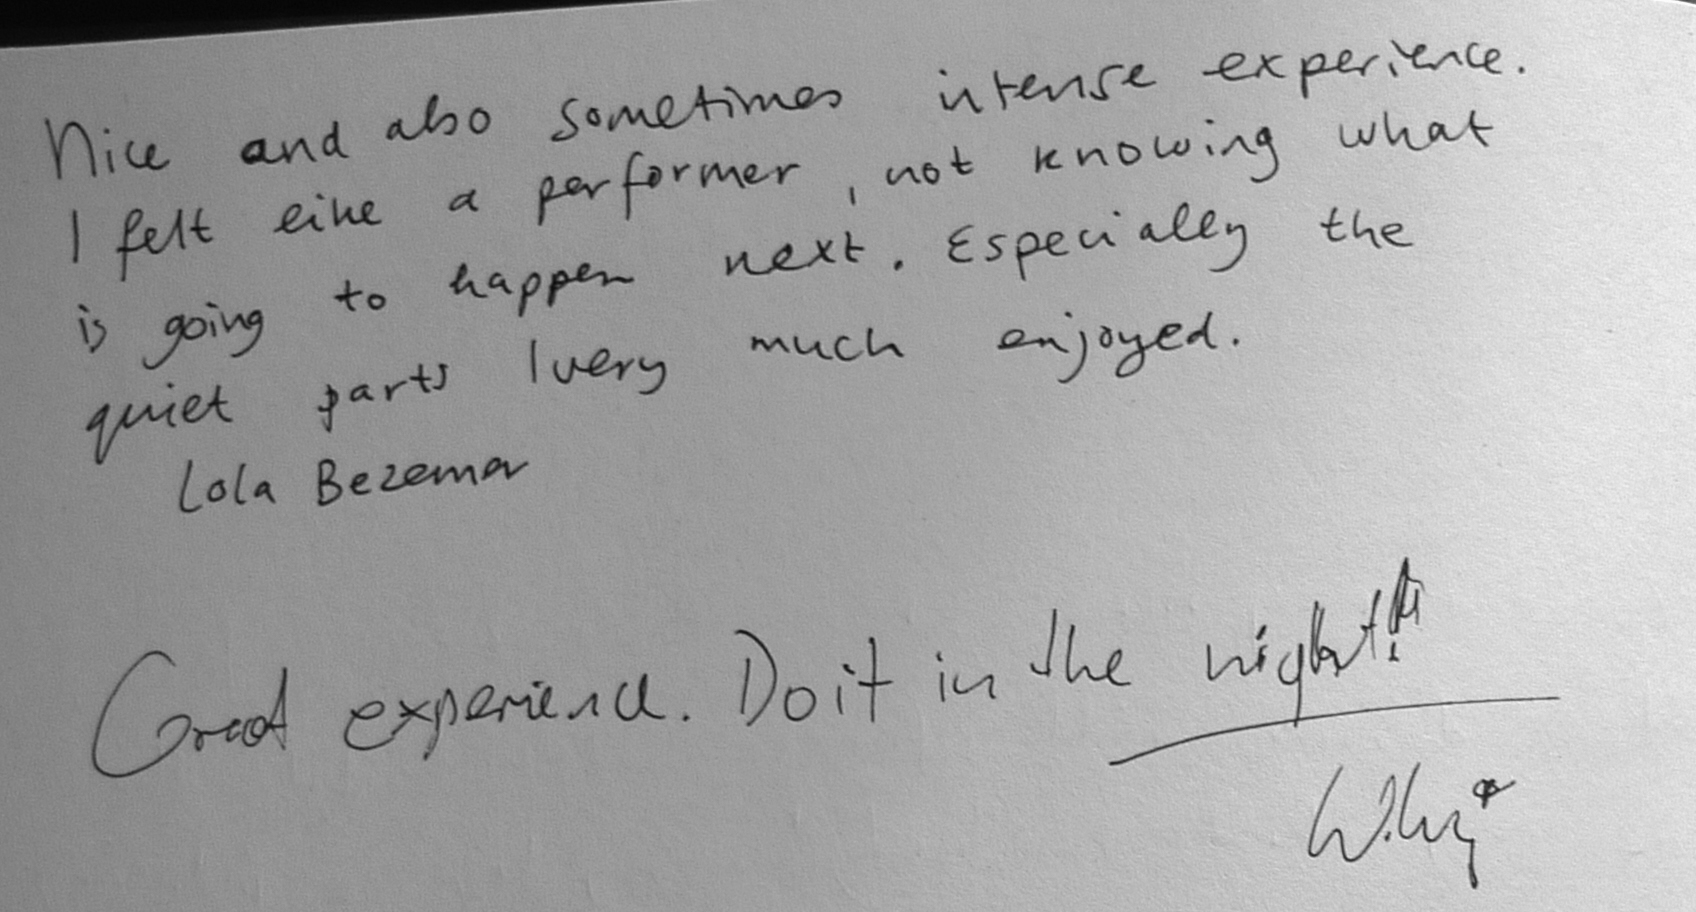 Nice and also sometimes intense experience.
I felt like a performer, not knowing what
is going to happen next. Especially the
quiet parts I very much enjoyed.
Lola Bezemer
Great experience. Do it in the night!!